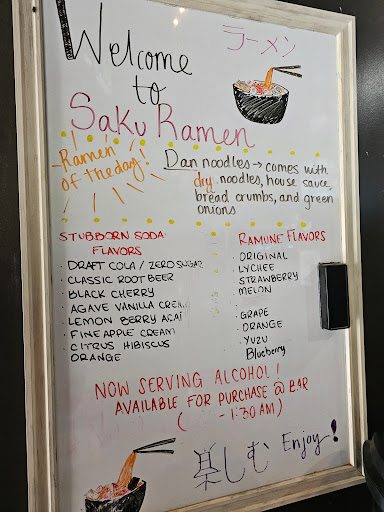 Welcome
to
Saku Ramen
ラーメン
Ramen
of the day!
Dan noodles → comes with
dry noodles, house sauce,
bread crumbs, and green
onions
STUBBORN SODA
FLAVORS
· DRAFT COLA / ZERO SUGAR
· CLASSIC ROOT BEER
· BLACK CHERRY
· AGAVE VANILLA CREAM
· LEMON BERRY ACAÍ
· PINEAPPLE CREAM
· CITRUS HIBISCUS
ORANGE
RAMUNE FLAVORS
· ORIGINAL
· LYCHEE
· STRAWBERRY
· MELON
· GRAPE
· ORANGE
· YUZU
· Blueberry
NOW SERVING ALCOHOL!
AVAILABLE FOR PURCHASE @ BAR
( - 1:30 AM)
楽しむ Enjoy!